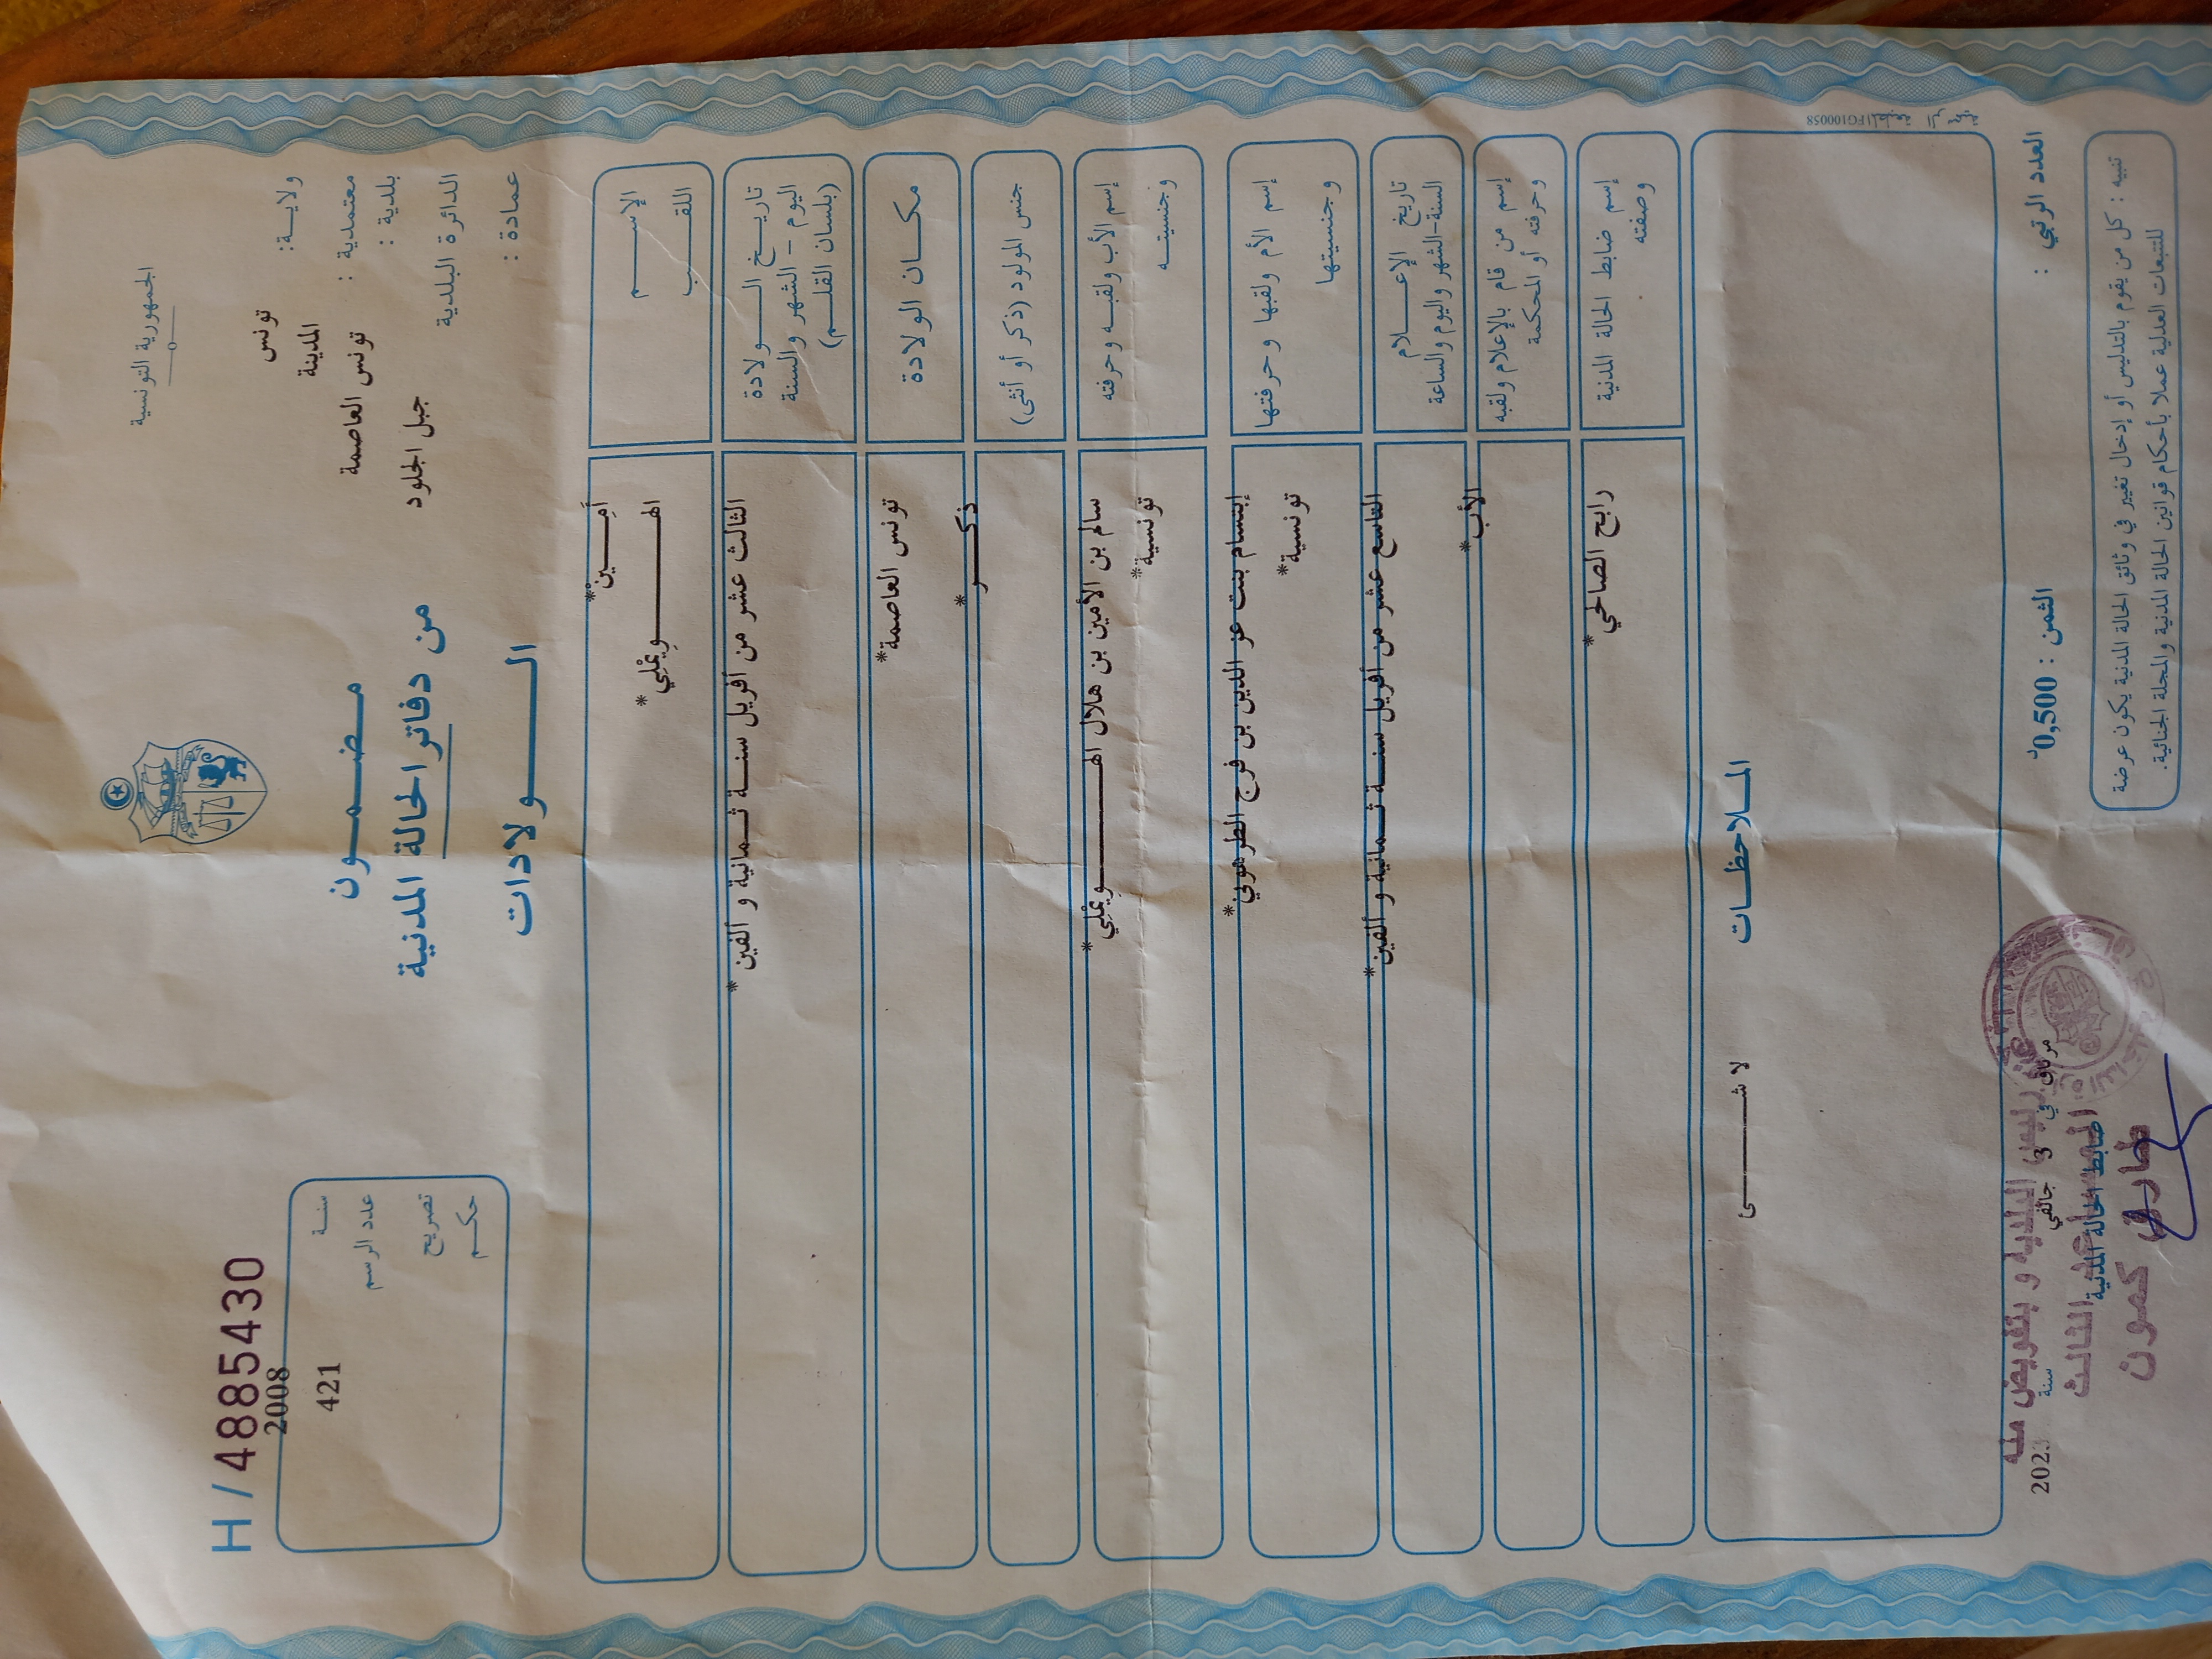 الجمهورية التونسية
H / 4885430
ولايـة:
تونس
معتمدية :
المدينة
بلدية :
تونس العاصمة
الدائرة البلدية
جبل الجلود
عمادة :
مـضـمـون
من دفاتر الحالة المدنية
الـولادات
سنـة
2008
عدد الرسم
421
تصريح
حكـم
الإســم
أمِـيـن*
اللقــب
الهـويمْلِي*
تاريـخ الـولادة
اليوم – الشهر والسنة
(بلسان القلـم)
الثالث عشر من أفريل سنـة ثـمانية و ألفين*
مكـان الولادة
تونس العاصمة*
جنس المولود (ذكر أو أنثى)
ذكـر*
إسم الأب ولقبـه وحرفته
وجنسيتـه
سالم بن الأمين بن هلال الهـويمْلِي*
تونسية*
إسم الأم ولقبها وحرفتها
وجنسيتها
إبتسام بنت عز الدين بن فرج الطرهوني*
تونسية*
تاريخ الإعـلام
السنة-الشهر واليوم والساعة
التاسع عشر من أفريل سنـة ثـمانية و ألفين*
إسم من قام بالإعلام ولقبه
وحرفته أو المحكمة
الأب*
إسم ضابط الحالة المدنية
وصفته
رابح الصالحي*
المـلاحظـات
لا شـئ
FG100058 المطبعة الرسمية
العدد الرتبي :
الثمن : 0,500د
في 3 جانفي
سنة
ضابط الحالة المدنية
رئيس البلدية و بتفويض منه
الثالث
طارق كمون
تنبيه : كل من يقوم بالتدليس أو إدخال تغيير في وثائق الحالة المدنية يكون عرضة
للتتبعات العدلية عملا بأحكام قوانين الحالة المدنية والمجلة الجنائية.